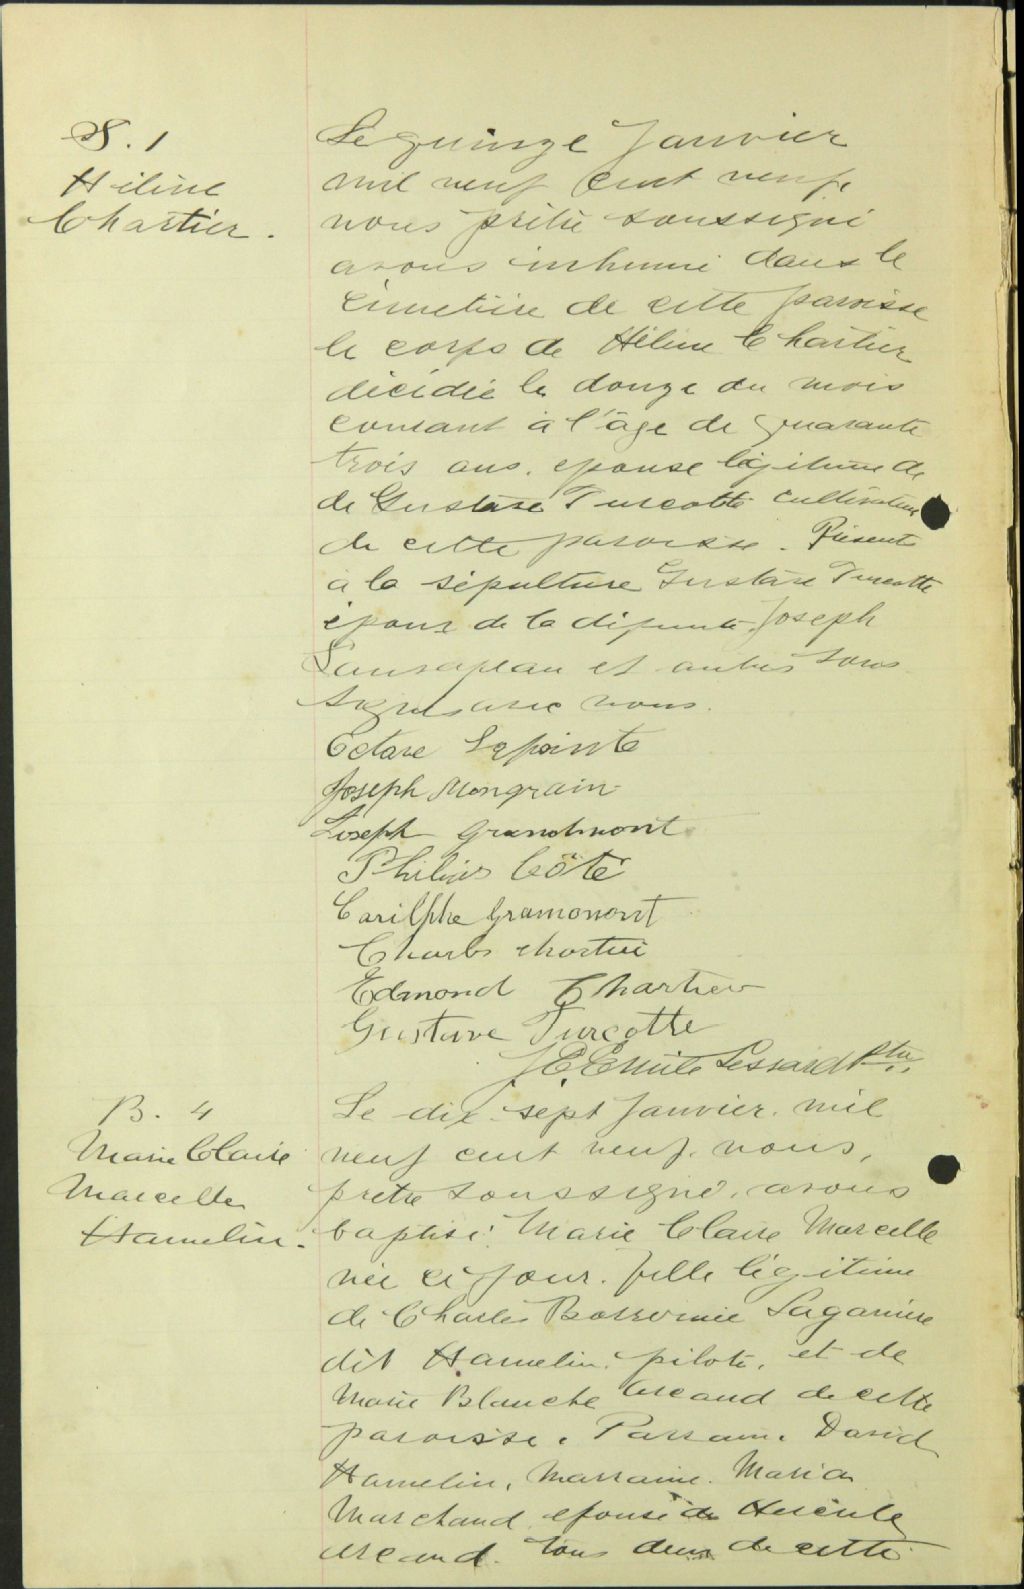 S. 1
Hélène
Chartier.
Le quinze Janvier
mil neuf cent neuf,
nous prêtre soussigné
avons inhumé dans le
cimetière de cette paroisse
le corps de Hélène Chartier
décédée le douze du mois
courant à l'âge de quarante
trois ans. epouse légitime de
de Gustave Turcotte cultivateur
de cette paroisse. Présents
à la sépulture Gustave Turcotte
époux de la défunte. Joseph
et autres sous
signés avec nous.
Octave Lapointe
Joseph Mongrain
Joseph Grandmont
Philias Côté
Carilphe Gramonont
Charles Chartié
Edmond Chartier
Gustave Turcotte
J. E. Emile Lessard Ptre.
B. 4
Marie Claire
Marcelle
Hamelin.
Le dix-sept Janvier. mil
neuf cent neuf. nous,
prêtre soussigné, avons
baptisé Marie Claire Marcelle
née ce jour. fille légitime
de Charles Borromée Laganière
dit Hamelin, pilote, et de
Marie Blanche Arcand de cette
paroisse. Parrain. David
Hamelin, Marraine. Maria
Marchand epouse de Hercule
Arcand. tous deux de cette